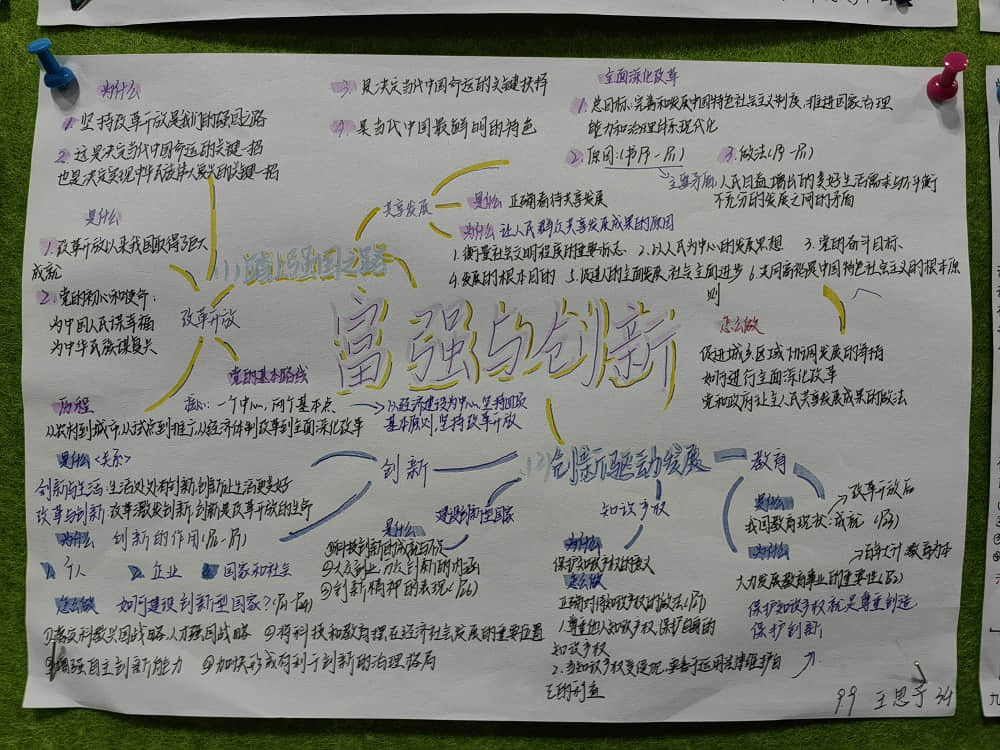 为什么
1. 坚持改革开放是我们的强国之路
2. 这是决定当代中国命运的关键一招
也是决定实现中华民族伟大复兴的关键一招
3. 是决定当代中国命运的关键抉择
4. 是当代中国最鲜明的特色
全面深化改革
1. 总目标:完善和发展中国特色社会主义制度、推进国家治理
能力和治理体系现代化
2. 原因:
3. 做法
主要矛盾:人民日益增长的美好生活需要与不平衡
不充分的发展之间的矛盾
共享发展
是什么 正确看待共享发展
为什么 让人民群众共享发展成果的原因
1. 衡量社会文明程度的重要标志 2. 以人民为中心的发展思想 3. 党的奋斗目标、
4. 发展的根本目的 5. 促进人的全面发展、社会全面进步 6. 共同富裕是中国特色社会主义的根本原
则
是什么
1. 改革开放以来我国取得了巨大
成就
2. 党的初心和使命:
为中国人民谋幸福
为中华民族谋复兴
(1)踏上强国之路
改革开放
富强与创新
怎么做
促进城乡区域协调发展的举措
如何进行全面深化改革
党和政府让人民共享发展成果的做法
党的基本路线
核心:一个中心,两个基本点
以经济建设为中心,坚持四项
基本原则,坚持改革开放
历程
从农村到城市,从试点到推广,从经济体制改革到全面深化改革
是什么<关系>
创新与生活:生活处处有创新,创新让生活更美好
改革与创新:改革激发创新,创新是改革开放的生命
为什么 创新的作用
1. 个人 2. 企业 3. 国家和社会
怎么做 如何建设创新型国家?
①落实科教兴国战略、人才强国战略 ②将科技和教育摆在经济社会发展的重要位置
③增强自主创新能力 ④加快形成有利于创新的治理格局
创新
(2)创新驱动发展
教育
建设创新型国家
是什么
①科技创新的成就与不足
②大众创业、万众创新的内涵
③创新精神的表现
知识产权
为什么
保护知识产权的意义
怎么做
正确对待知识产权的做法
1. 尊重他人知识产权,保护自己的
知识产权
2. 当知识产权受侵犯,要善于运用法律维护自
己的利益
是什么
改革开放后
我国教育现状:成就
为什么
百年大计 教育为本
大力发展教育事业的重要性
保护知识产权就是尊重创造、
保护创新
99 王思予 34